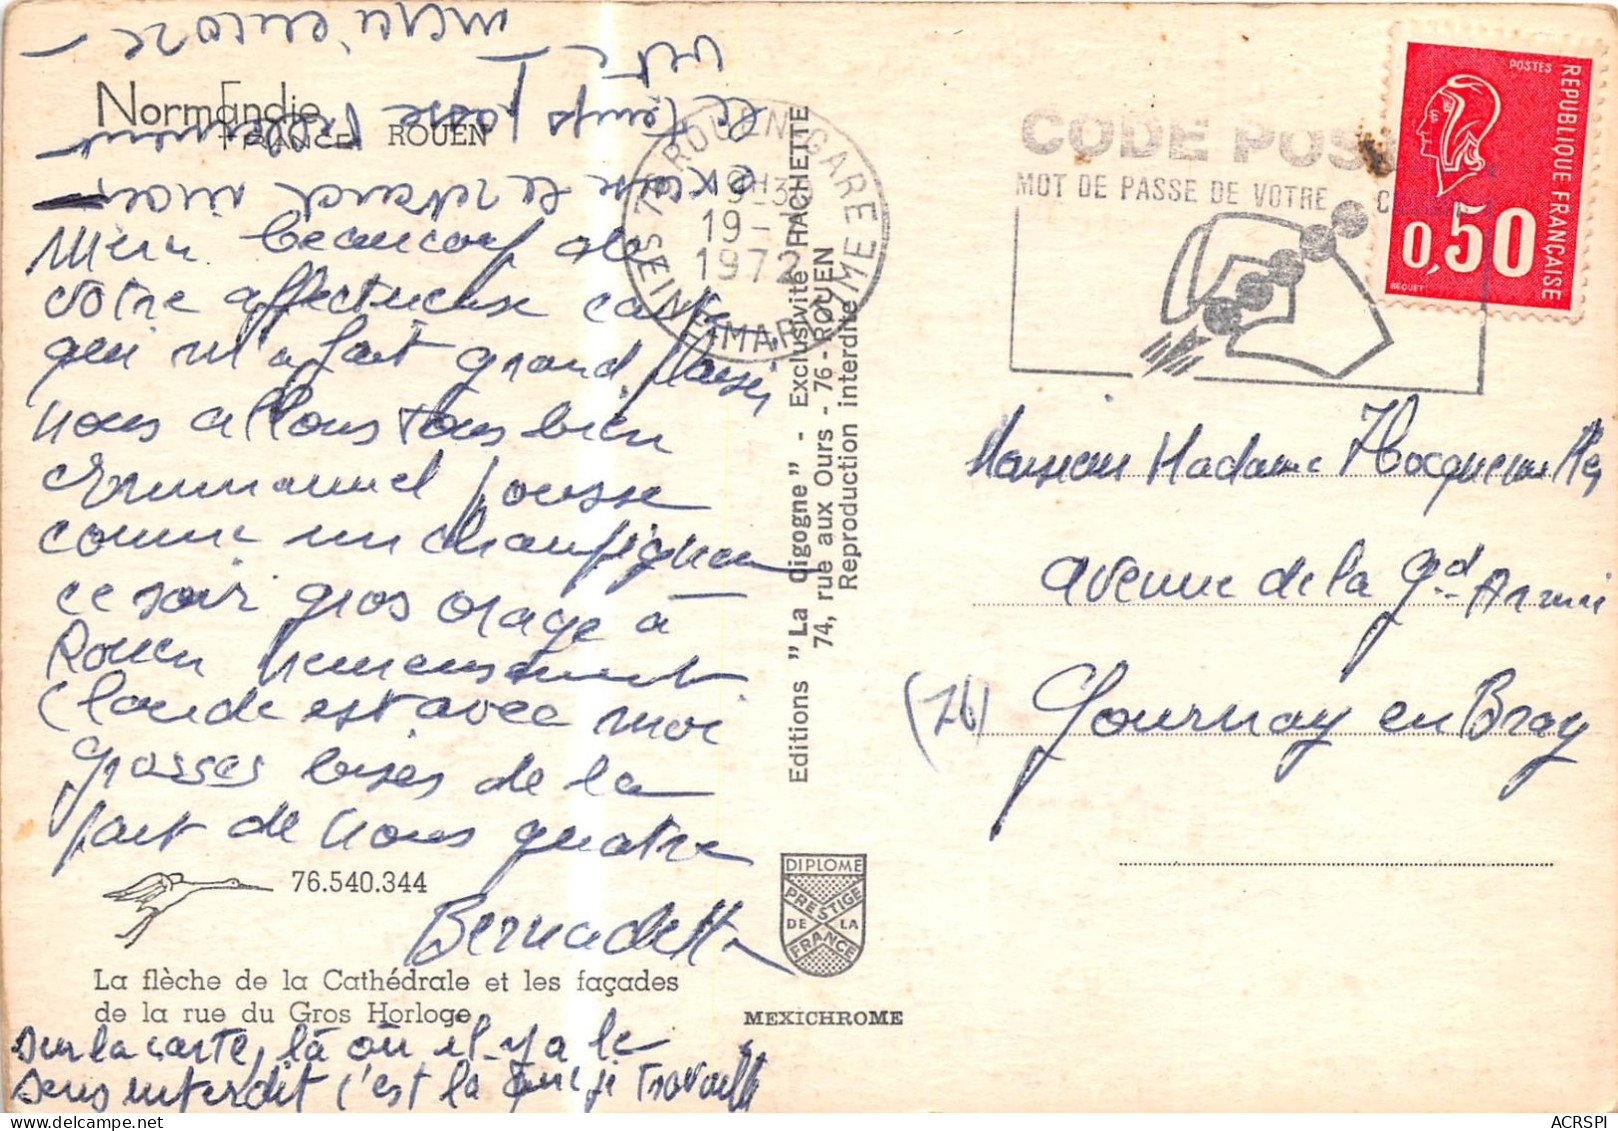 Normandie
FRANCE ROUEN
Merci beaucoup de
votre affectueuse carte
qui m'a fait grand plaisir
nous allons tous bien
Emmanuel pousse
comme un champignon
ce soir gros orage à
Rouen heureusement
Claude est avec moi
grosses bises de la
part de nous quatre
Bernadette
76.540.344
La flèche de la Cathédrale et les façades
de la rue du Gros Horloge
sur la carte, là où il y a le
sens interdit c'est là que je travaille
excuse le retard mais
le temps passe tellement
vite
merci encore
Editions "La Cigogne" - Exclusivité HACHETTE
74, rue aux Ours - 76 - ROUEN
Reproduction interdite
DIPLOME
PRESTIGE
DE LA
FRANCE
MEXICHROME
76 ROUEN GARE
19H30
19-
1972
SEINE-MARITIME
CODE POS
MOT DE PASSE DE VOTRE
POSTES
REPUBLIQUE FRANÇAISE
0,50
BEQUET
Monsieur Madame Hocquemiller
avenue de la Gde Armée
(76) Gournay en Bray
ACRSPI